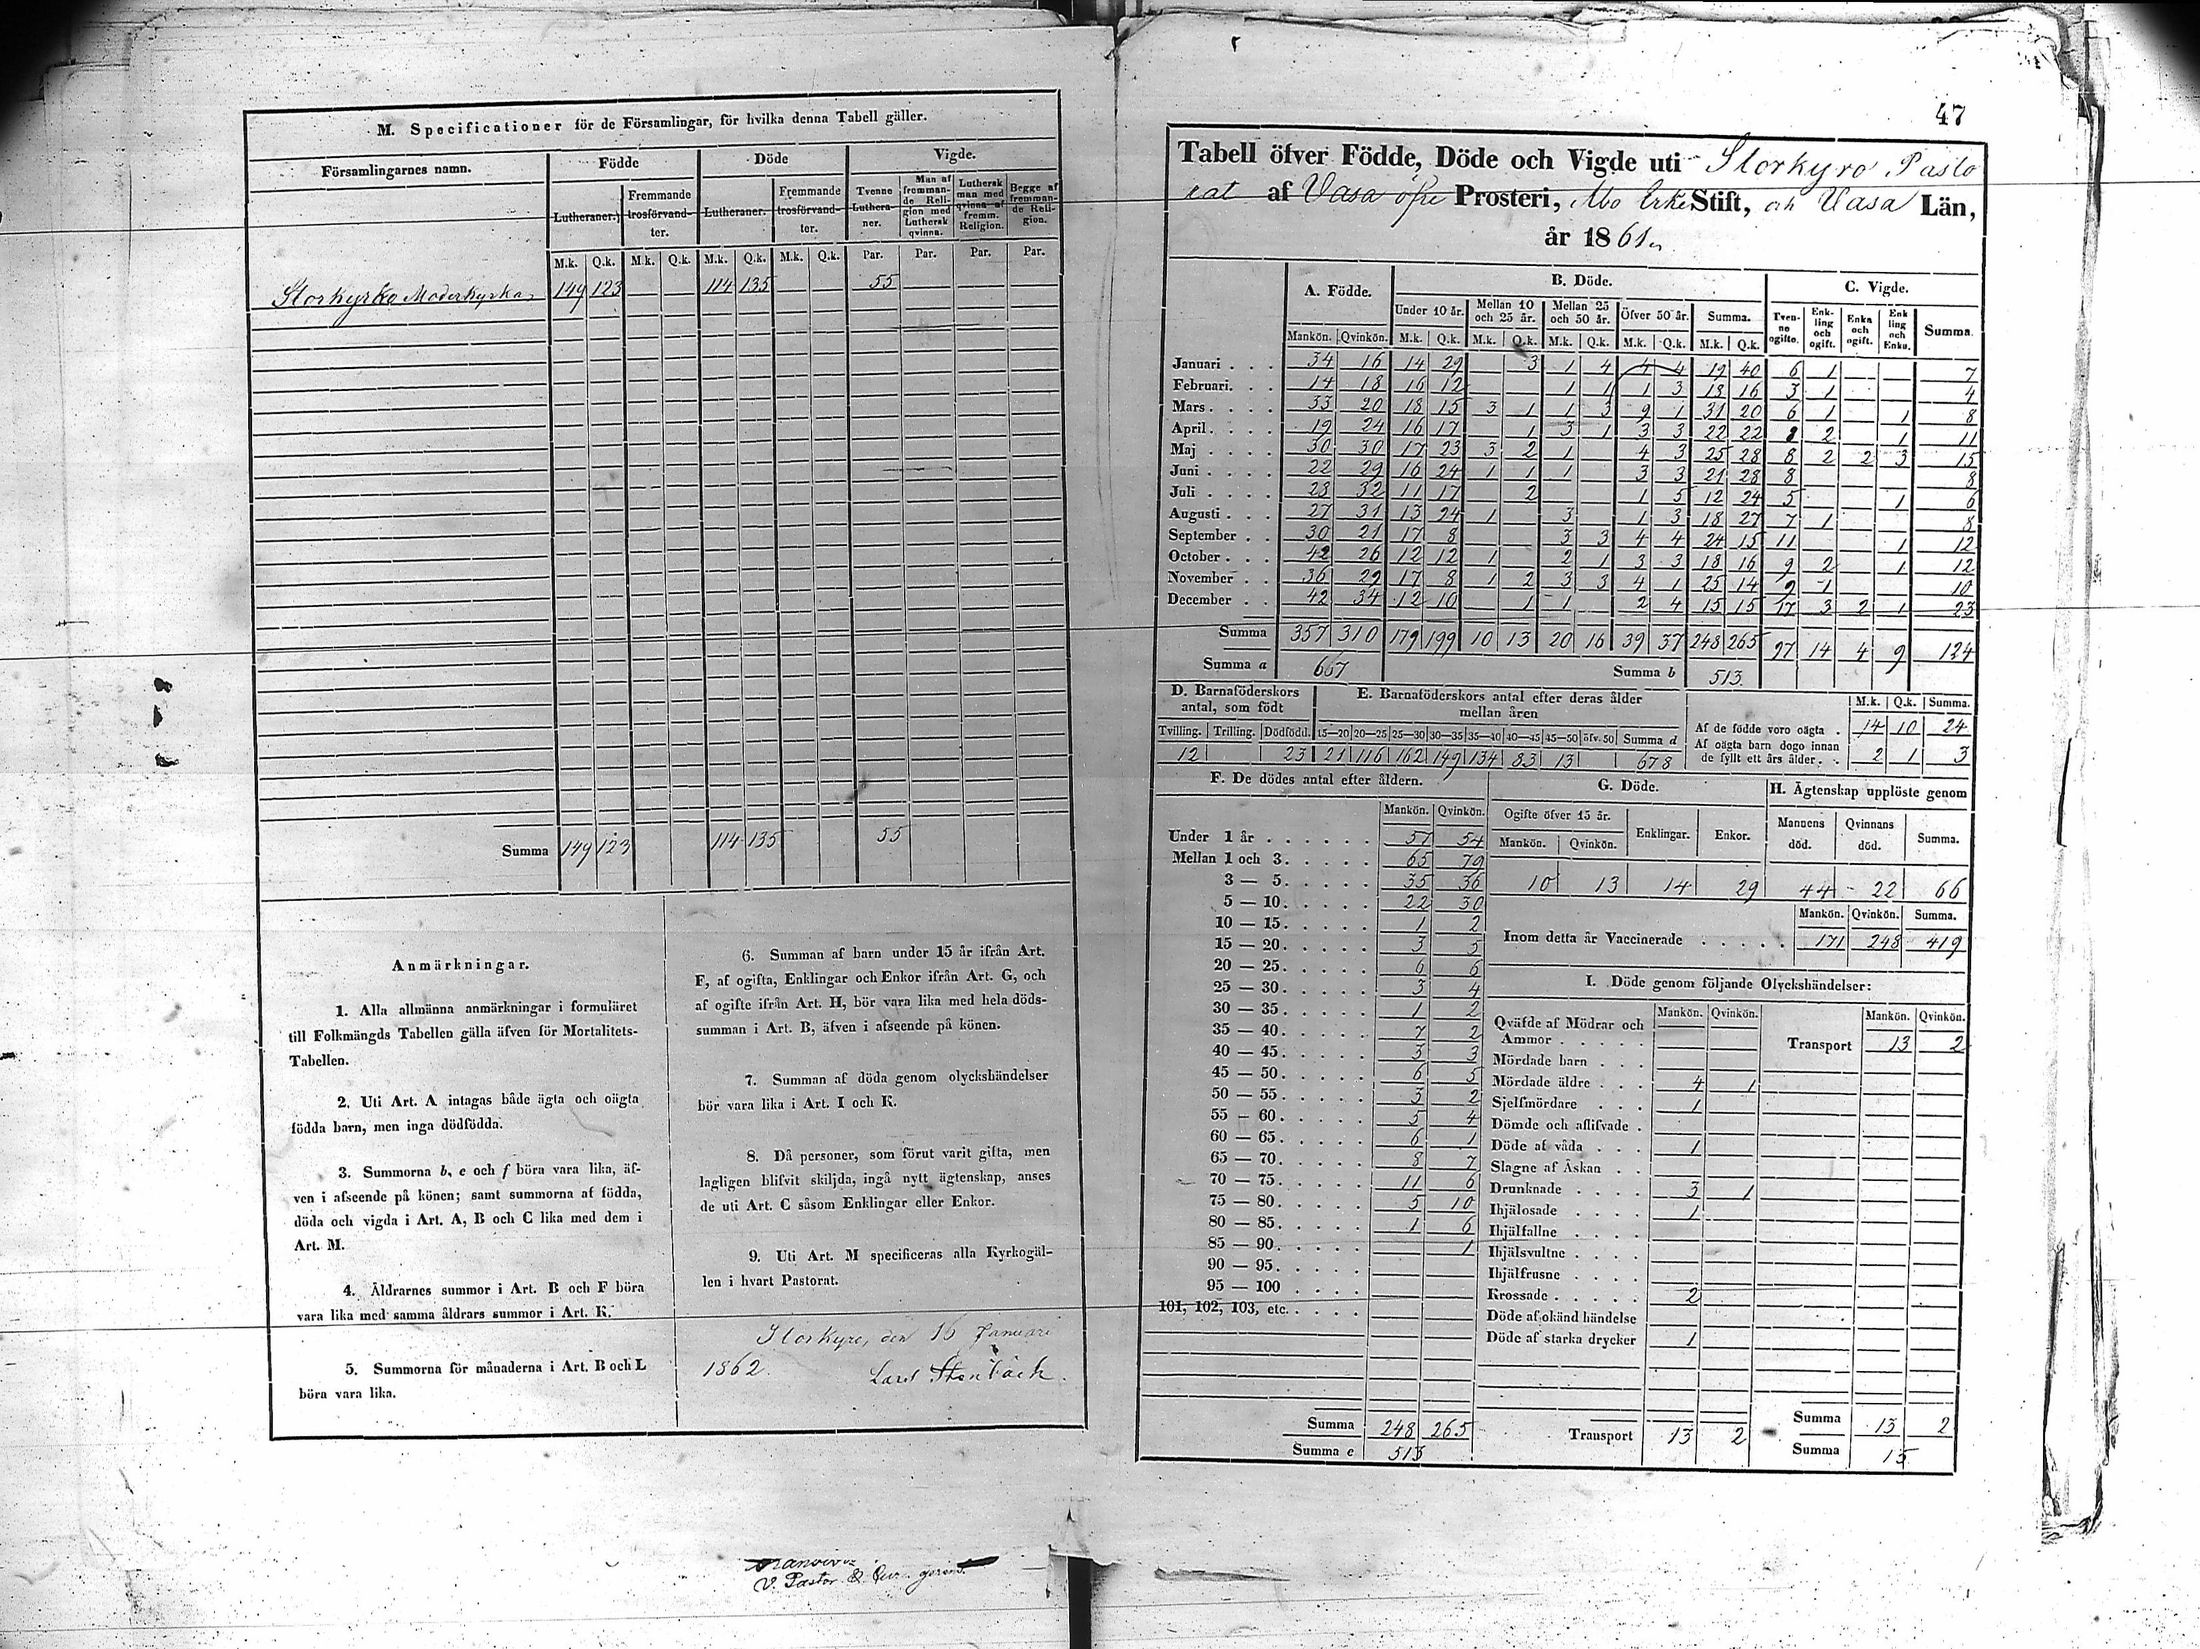 M. Specificationer för de Församlingar, för hvilka denna Tabell gäller.
Församlingarnes namn. Födde Döde Vigde.
Lutheraner. Fremmande trosförvandter. Lutheraner. Fremmande trosförvandter. Tvenne Lutheraner. Man af fremmande Religion med Luthersk qvinna. Luthersk man med qvinna af fremm. Religion. Begge af fremmande Religion.
M.k. Q.k. M.k. Q.k. M.k. Q.k. M.k. Q.k. Par. Par. Par. Par.
Storkyrko Moderkyrka 149 123 114 135 55
Summa 149 123 114 135 55
Anmärkningar.
1. Alla allmänna anmärkningar i formuläret
till Folkmängds Tabellen gälla äfven för Mortalitets-
Tabellen.
2. Uti Art. A intagas både ägta och oägta
födda barn, men inga dödfödda.
3. Summorna b, e och f böra vara lika, äf-
ven i afseende på könen; samt summorna af födda,
döda och vigda i Art. A, B och C lika med dem i
Art. M.
4. Åldrarnes summor i Art. B och F böra
vara lika med samma åldrars summor i Art. K.
5. Summorna för månaderna i Art. B och L
böra vara lika.
6. Summan af barn under 15 år ifrån Art.
F, af ogifta, Enklingar och Enkor ifrån Art. G, och
af ogifte ifrån Art. H, bör vara lika med hela döds-
summan i Art. B, äfven i afseende på könen.
7. Summan af döda genom olyckshändelser
bör vara lika i Art. I och K.
8. Då personer, som förut varit gifta, men
lagligen blifvit skiljda, ingå nytt ägtenskap, anses
de uti Art. C såsom Enklingar eller Enkor.
9. Uti Art. M specificeras alla Kyrkogäl-
len i hvart Pastorat.
Storkyro, den 16 Januari
1862.
Lars Stenbäck.
V. Pastor
47
Tabell öfver Födde, Döde och Vigde uti Storkyro Pasto
rat af Vasa öfre Prosteri, Åbo Erke Stift, och Vasa Län,
år 1861.
A. Födde. B. Döde. C. Vigde.
Under 10 år. Mellan 10 och 25 år. Mellan 25 och 50 år. Öfver 50 år. Summa. Tvenne ogifte. Enkling och ogift. Enka och ogift. Enkling och Enka. Summa.
Mankön. Qvinkön. M.k. Q.k. M.k. Q.k. M.k. Q.k. M.k. Q.k. M.k. Q.k.
Januari 34 16 14 29 3 1 4 4 4 19 40 6 1 7
Februari 14 18 16 12 1 1 1 3 18 16 3 1 4
Mars 33 20 18 15 3 1 1 3 9 1 31 20 6 1 1 8
April 19 24 16 17 1 3 1 3 3 22 22 8 2 1 11
Maj 30 30 17 23 3 2 1 4 3 25 28 8 2 2 3 15
Juni 22 29 16 24 1 1 1 3 3 21 28 8 8
Juli 28 32 11 17 2 1 5 12 24 5 1 6
Augusti 27 31 13 24 1 3 1 3 18 27 7 1 8
September 30 21 17 8 3 3 4 4 24 15 11 1 12
October 42 26 12 12 1 2 1 3 3 18 16 9 2 1 12
November 36 29 17 8 1 2 3 3 4 1 25 14 9 1 10
December 42 34 12 10 1 1 2 4 15 15 17 3 2 1 23
Summa 357 310 179 199 10 13 20 16 39 37 248 265 97 14 4 9 124
Summa a 667 Summa b 513
D. Barnaföderskors antal, som födt
Tvilling. Trilling. Dödfödd.
12 23
E. Barnaföderskors antal efter deras ålder mellan åren
15—20 20—25 25—30 30—35 35—40 40—45 45—50 öfv. 50 Summa d
21 116 162 149 134 83 13 678
M.k. Q.k. Summa.
Af de födde voro oägta . 14 10 24
Af oägta barn dogo innan de fyllt ett års ålder . . 2 1 3
F. De dödes antal efter åldern.
Mankön. Qvinkön.
Under 1 år 57 54
Mellan 1 och 3 65 79
3 — 5 35 36
5 — 10 22 30
10 — 15 1 2
15 — 20 3 5
20 — 25 6 6
25 — 30 3 4
30 — 35 1 2
35 — 40 7 2
40 — 45 3 3
45 — 50 6 5
50 — 55 3 2
55 — 60 5 4
60 — 65 6 1
65 — 70 8 7
70 — 75 11 6
75 — 80 5 10
80 — 85 1 6
85 — 90 1
90 — 95
95 — 100
101, 102, 103, etc.
Summa 248 265
Summa e 513
G. Döde.
Ogifte öfver 15 år. Enklingar. Enkor.
Mankön. Qvinkön.
10 13 14 29
H. Ägtenskap upplöste genom
Mannens död. Qvinnans död. Summa.
44 22 66
Mankön. Qvinkön. Summa.
Inom detta år Vaccinerade 171 248 419
I. Döde genom följande Olyckshändelser:
Mankön. Qvinkön. Mankön. Qvinkön.
Qväfde af Mödrar och Ammor
Transport 13 2
Mördade barn
Mördade äldre 4 1
Sjelfmördare 1
Dömde och aflifvade
Döde af våda 1
Slagne af Åskan
Drunknade 3 1
Ihjälosade 1
Ihjälfallne
Ihjälsvultne
Ihjälfrusne
Krossade 2
Döde af okänd händelse
Döde af starka drycker 1
Transport 13 2
Summa 13 2
Summa 15